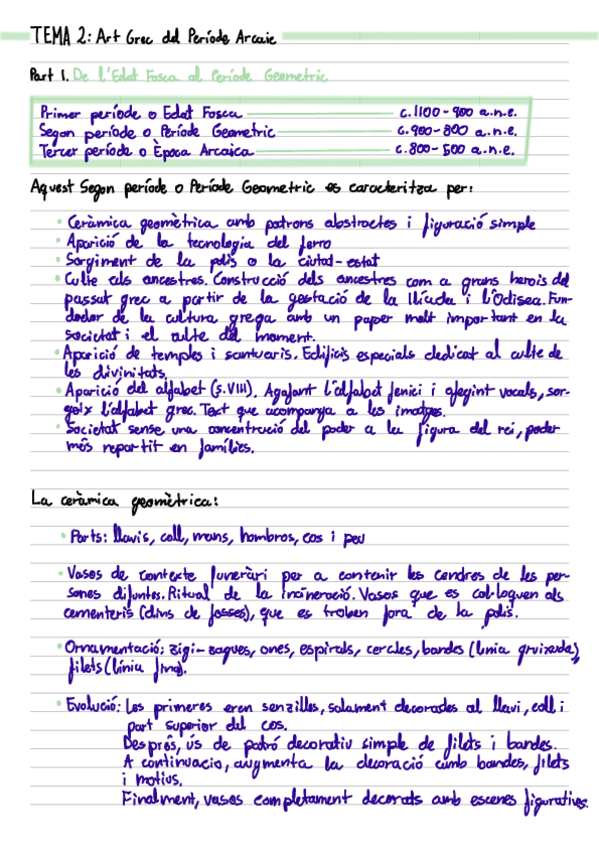 TEMA 2: Art Grec del Període Arcaic
Part 1. De l'Edat Fosca al Període Geomètric
Primer període o Edat Fosca c.1100-900 a.n.e.
Segon període o Període Geometric c.900-800 a.n.e.
Tercer període o Època Arcaica c.800-500 a.n.e.
Aquest Segon període o Període Geometric es caracteritza per:
• Ceràmica geomètrica amb patrons abstractes i figuració simple
• Aparició de la tecnologia del ferro
• Sorgiment de la polis o la ciutat-estat
• Culte als ancestres. Construcció dels ancestres com a grans herois del
passat grec a partir de la gestació de la Ilíada i l'Odisea. Fun-
dador de la cultura grega amb un paper molt important en la
societat i el culte del moment.
• Aparició de temples i santuaris. Edificis especials dedicat al culte de
les divinitats.
• Aparició del alfabet (s.VIII). Agafant l'alfabet fenici i afegint vocals, sor-
geix l'alfabet grec. Text que acompanya a les imatges.
• Societat sense una concentració del poder a la figura del rei, poder
més repartit en famílies.
La ceràmica geomètrica:
• Parts: llavis, coll, mans, hombros, cos i peu
• Vasos de contexte funerari per a contenir les cendres de les per-
sones difuntes. Ritual de la incineració. Vasos que es col·loquen als
cementeris (dins de fosses), que es troben fora de la polis.
• Ornamentació: zigi-zagues, ones, espirals, cercles, bandes (linia gruixuda),
filets (línia fina).
• Evolució: Les primeres eren senzilles, solament decorades al llavi, coll i
part superior del cos.
Després, ús de patró decoratiu simple de filets i bandes.
A continuacio, augmenta la decoració amb bandes, filets
i motius.
Finalment, vasos completament decorats amb escenes figuratives.